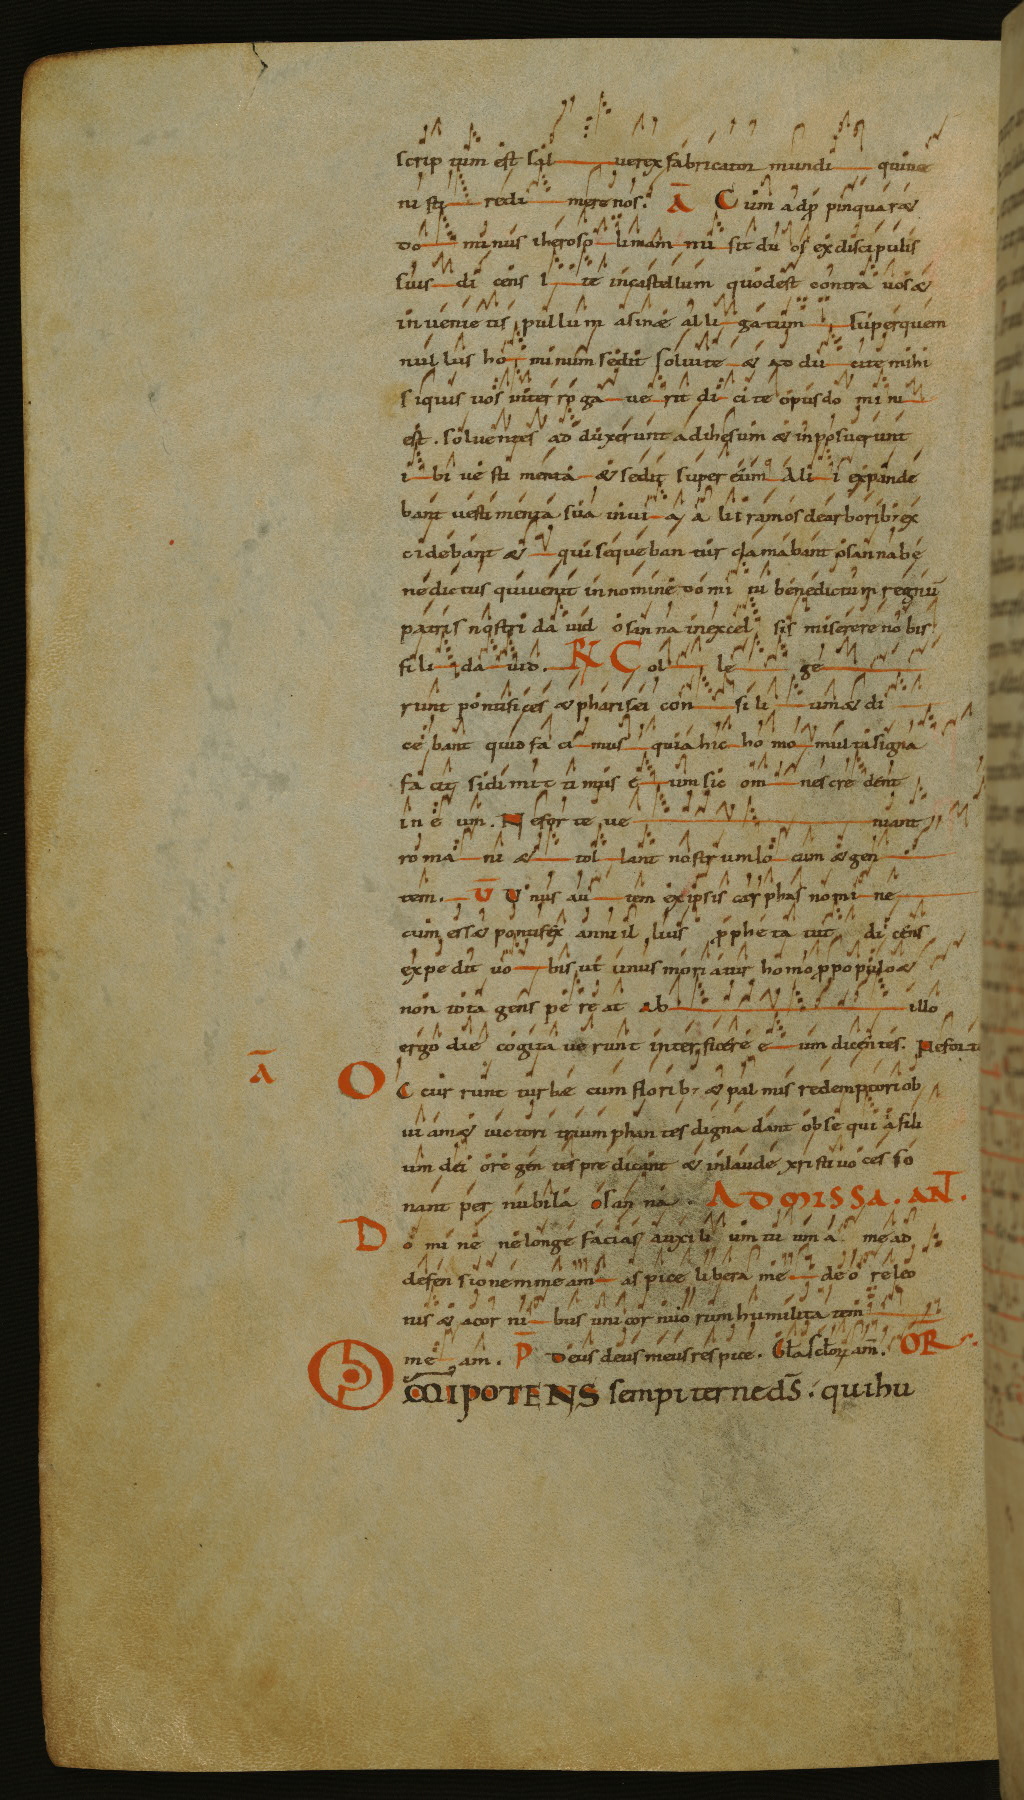 scrip tum est sal uerex fabricator mundi quiue
nisti redi mere nos. A Cum adp̄ pinquar&
do minus iherosolimam mi sit duos ex discipulis
suis di cens Ite in castellum quod est contra uos &
inuenie tis pullum asinae alli gatum superquem
nul lus ho minum sedit soluite & addu cite mihi
siquis uos inter roga ue rit di cite opus do mini
est. soluentes ad duxerunt adihesum & inposuerunt
i bi ue sti menta & sedit super eum Alii expande
bant uestimenta sua inui a alii ramos dearborib; ex
cidebant & quisequeban tur clamabant osanna be
nedictus quiuenit innomine domi ni benedictum regnū
patris nostri dauid osanna inexcel sis miserere nobis
fili dauid. R Col le ge
runt pontifices & pharisei con sili um & di
cebant quid faci mus quia hic homo multa signa
facit sidimit timus e um sic om nes cre dent
in e um. Ne forte ue niant
roma ni & tol lant nostrum lo cum & gen
tem. V Unus au tem exipsis caiphas nomi ne
cum ess& pontifex anni il lius p̄pheta uit di cens
expe dit uo bis ut unus moriatur homo ppopulo &
non tota gens pe re at Ab illo
ergo die cogita ue runt interficere e um dicentes. Nefor
A OCcur runt turbae cum florib; & pal mis redemptori ob
ui am & uictori triumphan tes digna dant obsequi a fili
um dei ore gen tes predicant & inlaude xpisti uo ces so
nant per nubila osanna. AD MISSA. AN.
Do mi ne ne longe facias auxili um tu um a me ad
defen sionem meam aspice libera me de o re leo
nis & acor ni bus uni cor nuo rum humilita tem
me am. P Deus deus meus respice. OR
OMIPOTENS sempiterne dS. quihu